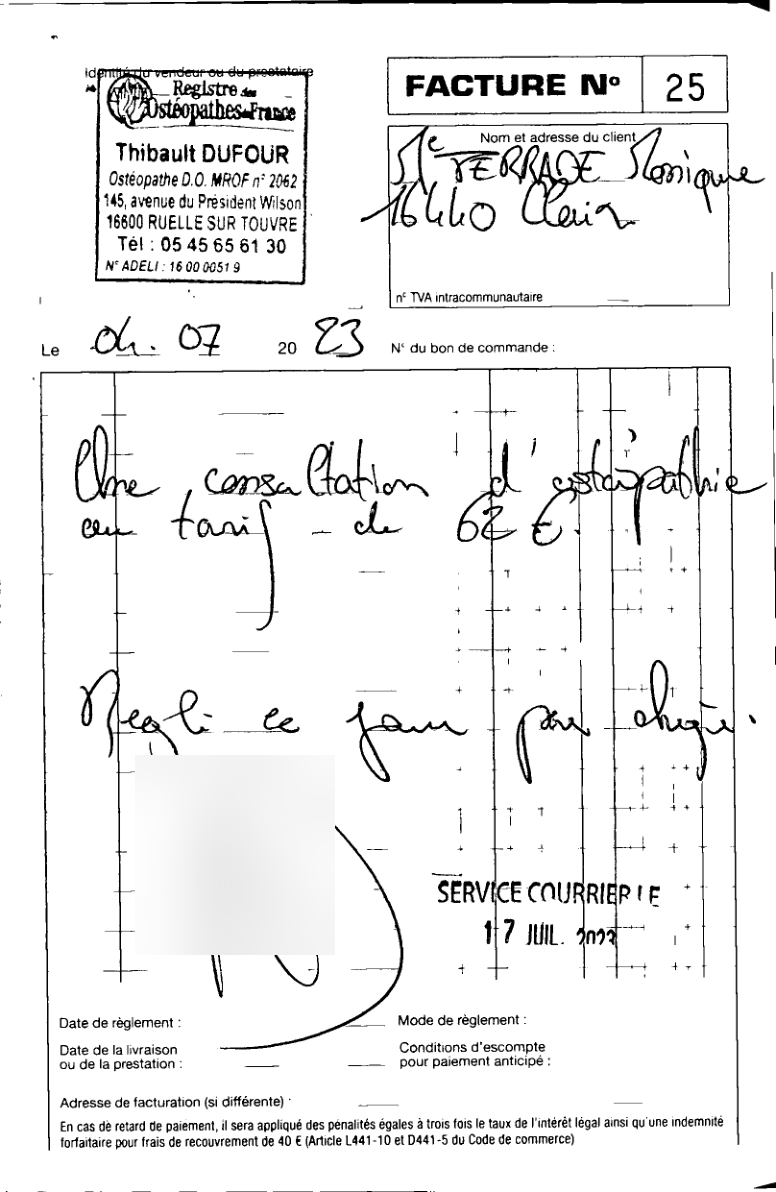 Identité du vendeur ou du prestataire
Registre des
Ostéopathes de France
Thibault DUFOUR
Ostéopathe D.O. MROF n° 2062
145, avenue du Président Wilson
16600 RUELLE SUR TOUVRE
Tél : 05 45 65 61 30
N° ADELI : 16 00 0051 9
FACTURE N° 25
Nom et adresse du client
Me TERRADE Monique
16440 Claix
n° TVA intracommunautaire
Le 04. 07 20 23 N° du bon de commande :
Une consultation d'ostéopathie
au tarif de 62 €.
Réglé ce jour par chèque.
SERVICE COURRIER LE
17 JUIL. 2023
Date de règlement :
Mode de règlement :
Date de la livraison
ou de la prestation :
Conditions d'escompte
pour paiement anticipé :
Adresse de facturation (si différente) :
En cas de retard de paiement, il sera appliqué des pénalités égales à trois fois le taux de l'intérêt légal ainsi qu'une indemnité
forfaitaire pour frais de recouvrement de 40 € (Article L441-10 et D441-5 du Code de commerce)